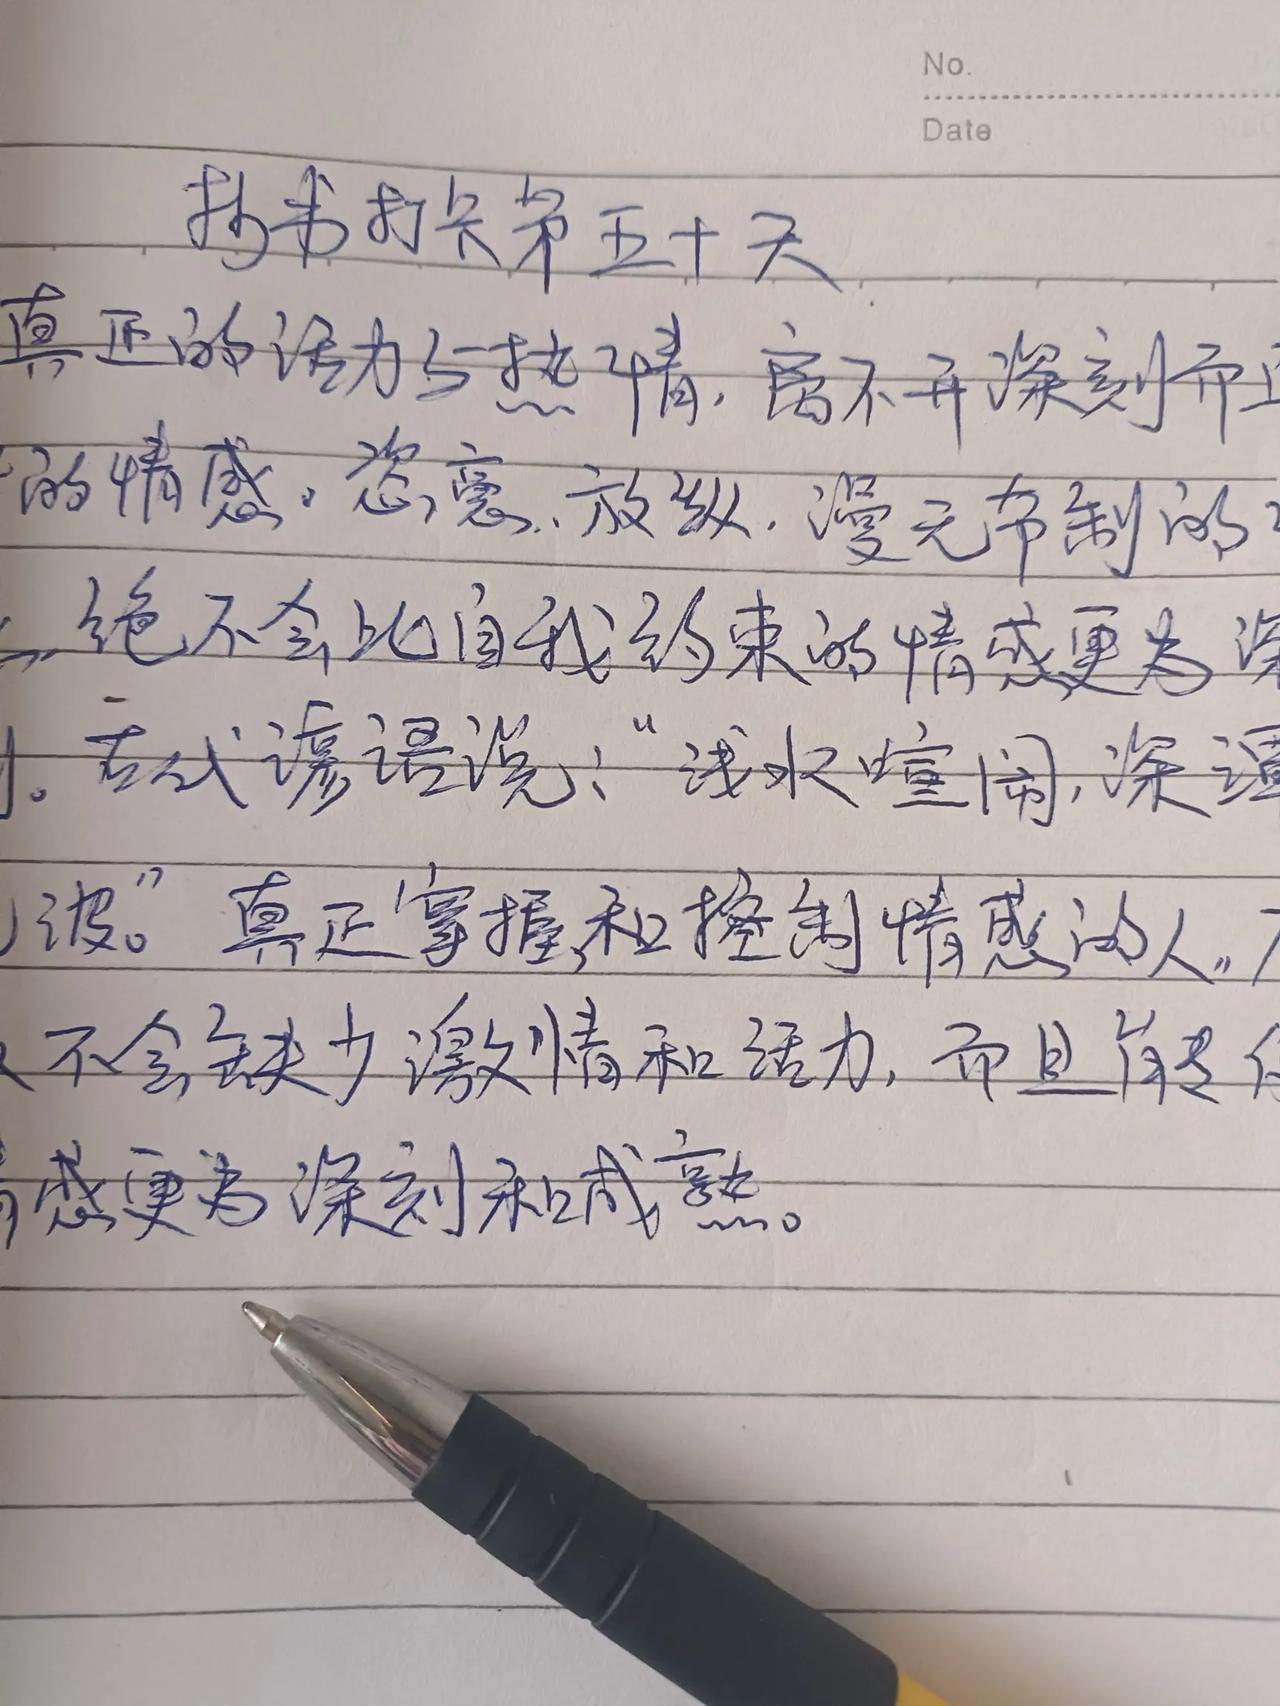 No.
Date
抄书打卡第五十天
真正的活力与热情，离不开深刻而
的情感。恣意、放纵、漫无节制的
绝不会比自我约束的情感更为深
。古代谚语说：“浅水喧闹，深潭
波。”真正掌握和控制情感的人，
不会缺少激情和活力，而且
感更为深刻和成熟。